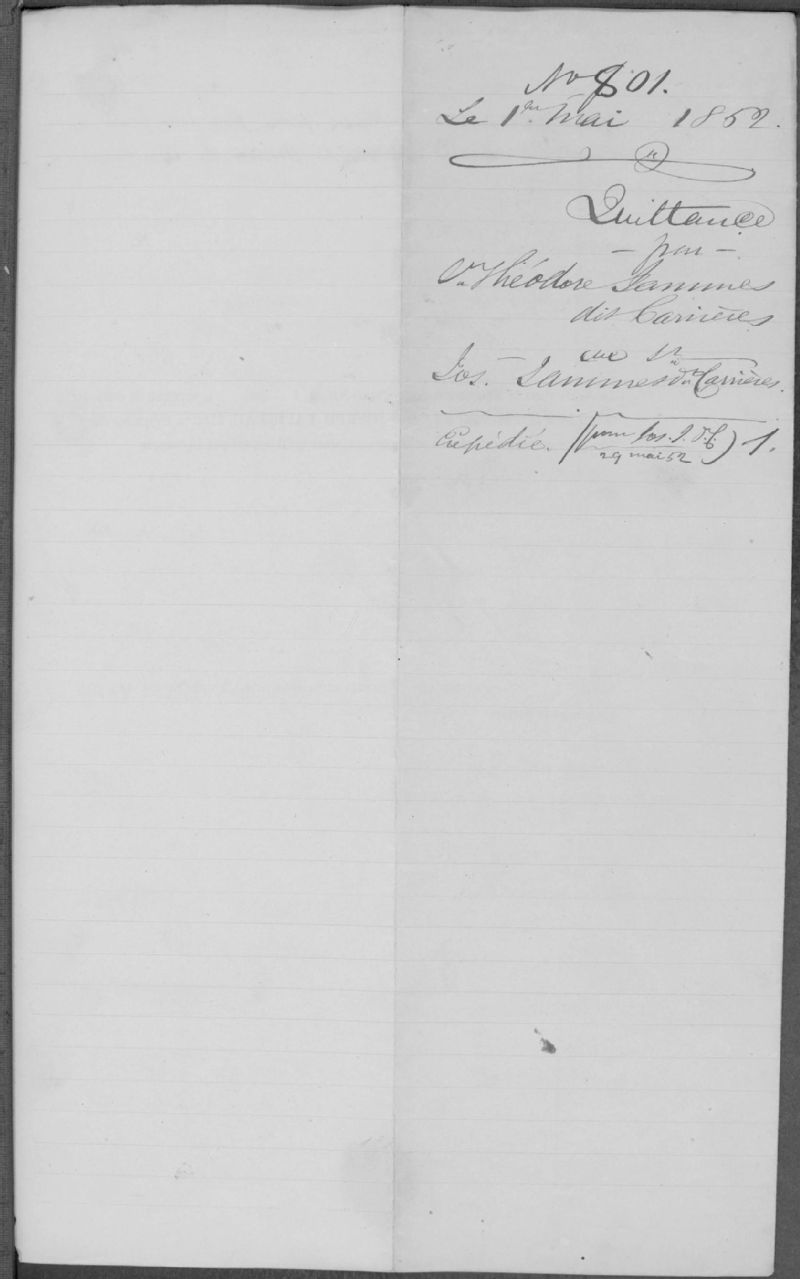 No 801.
Le 1er Mai 1852.
Quittance
— par —
Sr Théodore Jammes
dit Carrières
au Sr
Jos. Jammes dit Carrières.
Expédié. (pour Jos. J. d. C. 29 mai 52) 1.